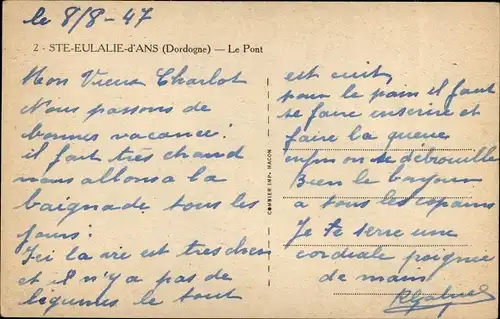 le 8/8-47
2 - STE-EULALIE-d'ANS (Dordogne) — Le Pont
Mon Vieux Charlot
Nous passons de
bonnes vacance!
il fait très chaud
nous allons a la
baignade tous les
jours:
Ici la vie est très cher
et il n'y a pas de
légumes le tout
COMBIER IMP. MACON
est cuit
pour le pain il faut
se faire inscrire et
faire la queue
enfin on se débrouille
Bien le bonjour
a tous les copains
Je te serre une
cordiale poignée
de main